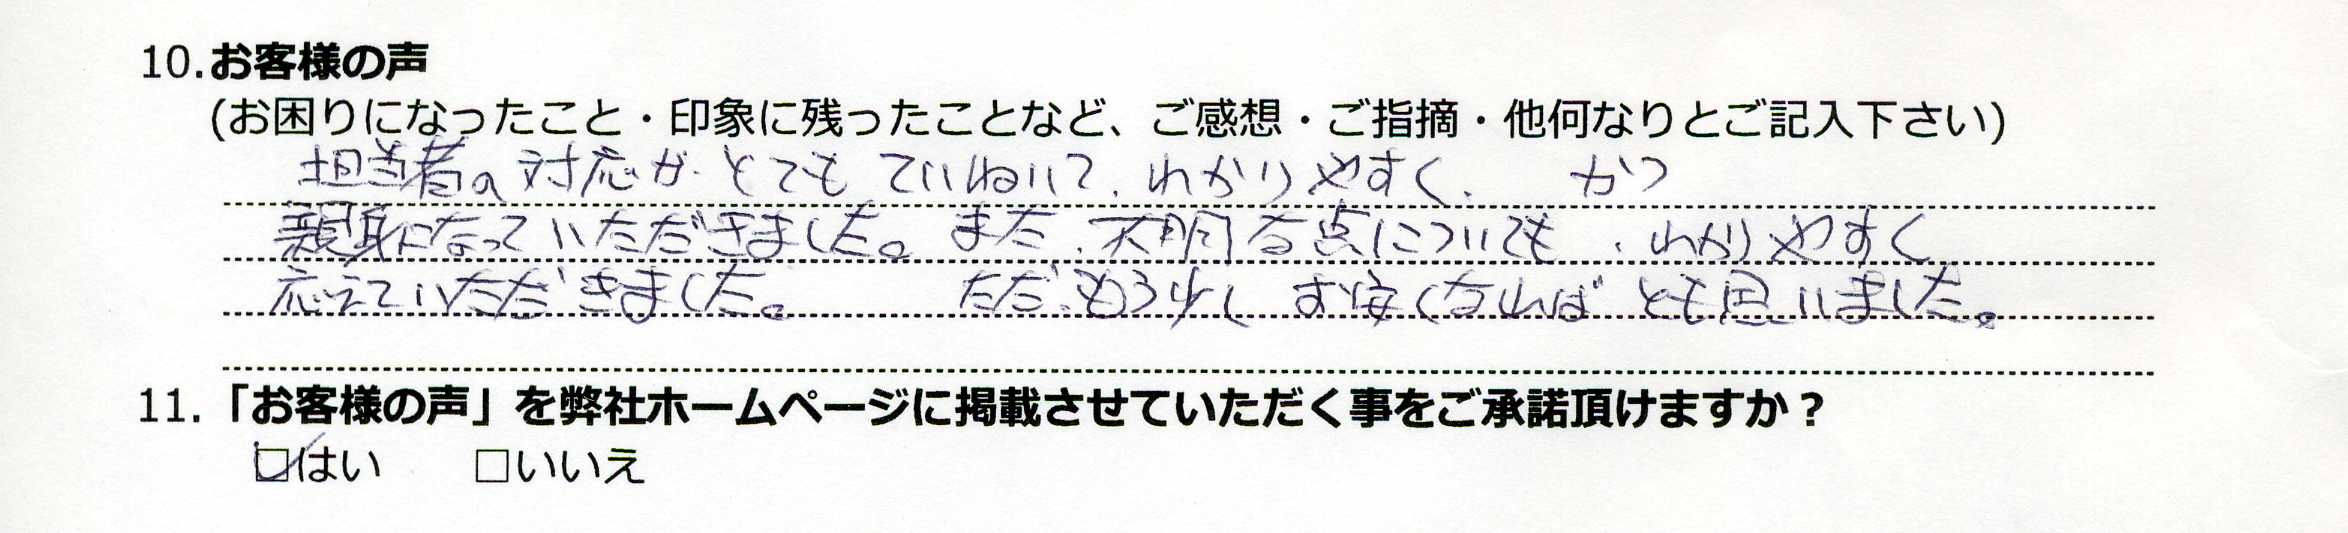 10.お客様の声
(お困りになったこと・印象に残ったことなど、ご感想・ご指摘・他何なりとご記入下さい)
担当者の対応がとてもていねいで、わかりやすく、 かつ
親身になっていただきました。また、不明な点についても、わかりやすく
応えていただきました。 ただ、もう少しお安くなればとも思いました。
11.「お客様の声」を弊社ホームページに掲載させていただく事をご承諾頂けますか？
☑はい □いいえ